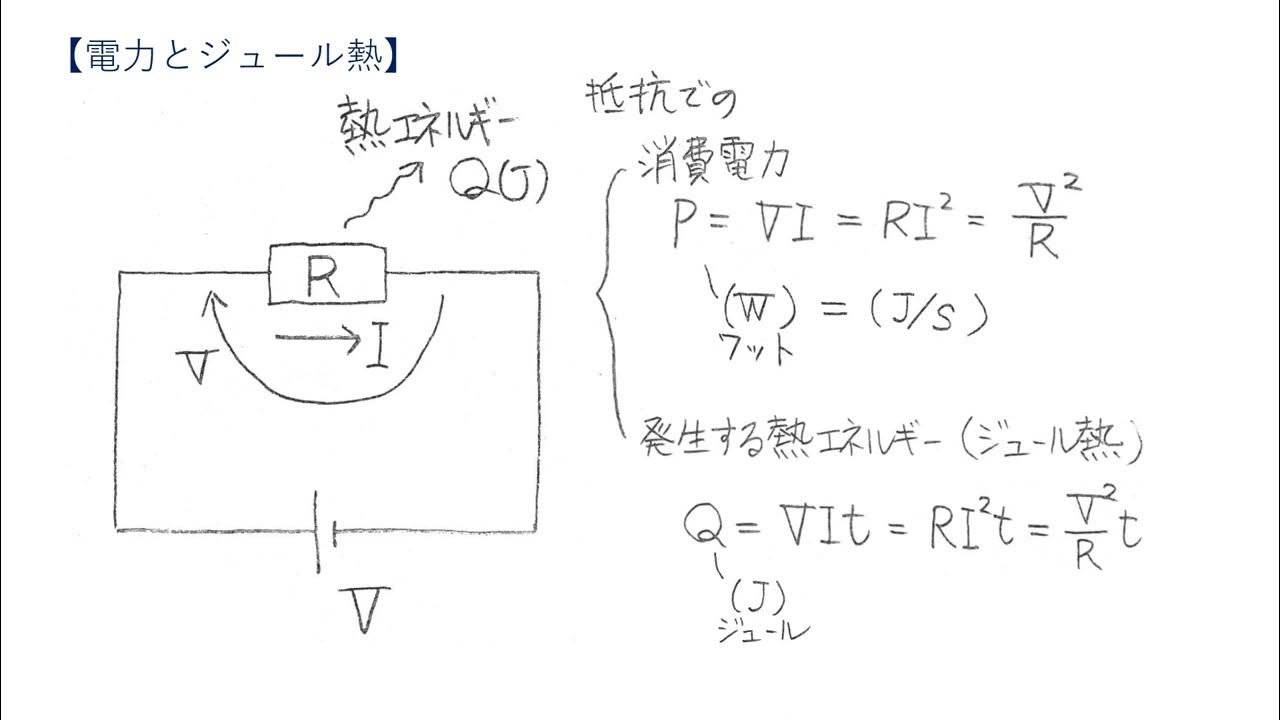 【電力とジュール熱】
熱エネルギー
Q(J)
R
I
V
V
抵抗での
消費電力
P = VI = RI² = V²/R
(W) = (J/s)
ワット
発生する熱エネルギー(ジュール熱)
Q = VIt = RI²t = V²/R t
(J)
ジュール